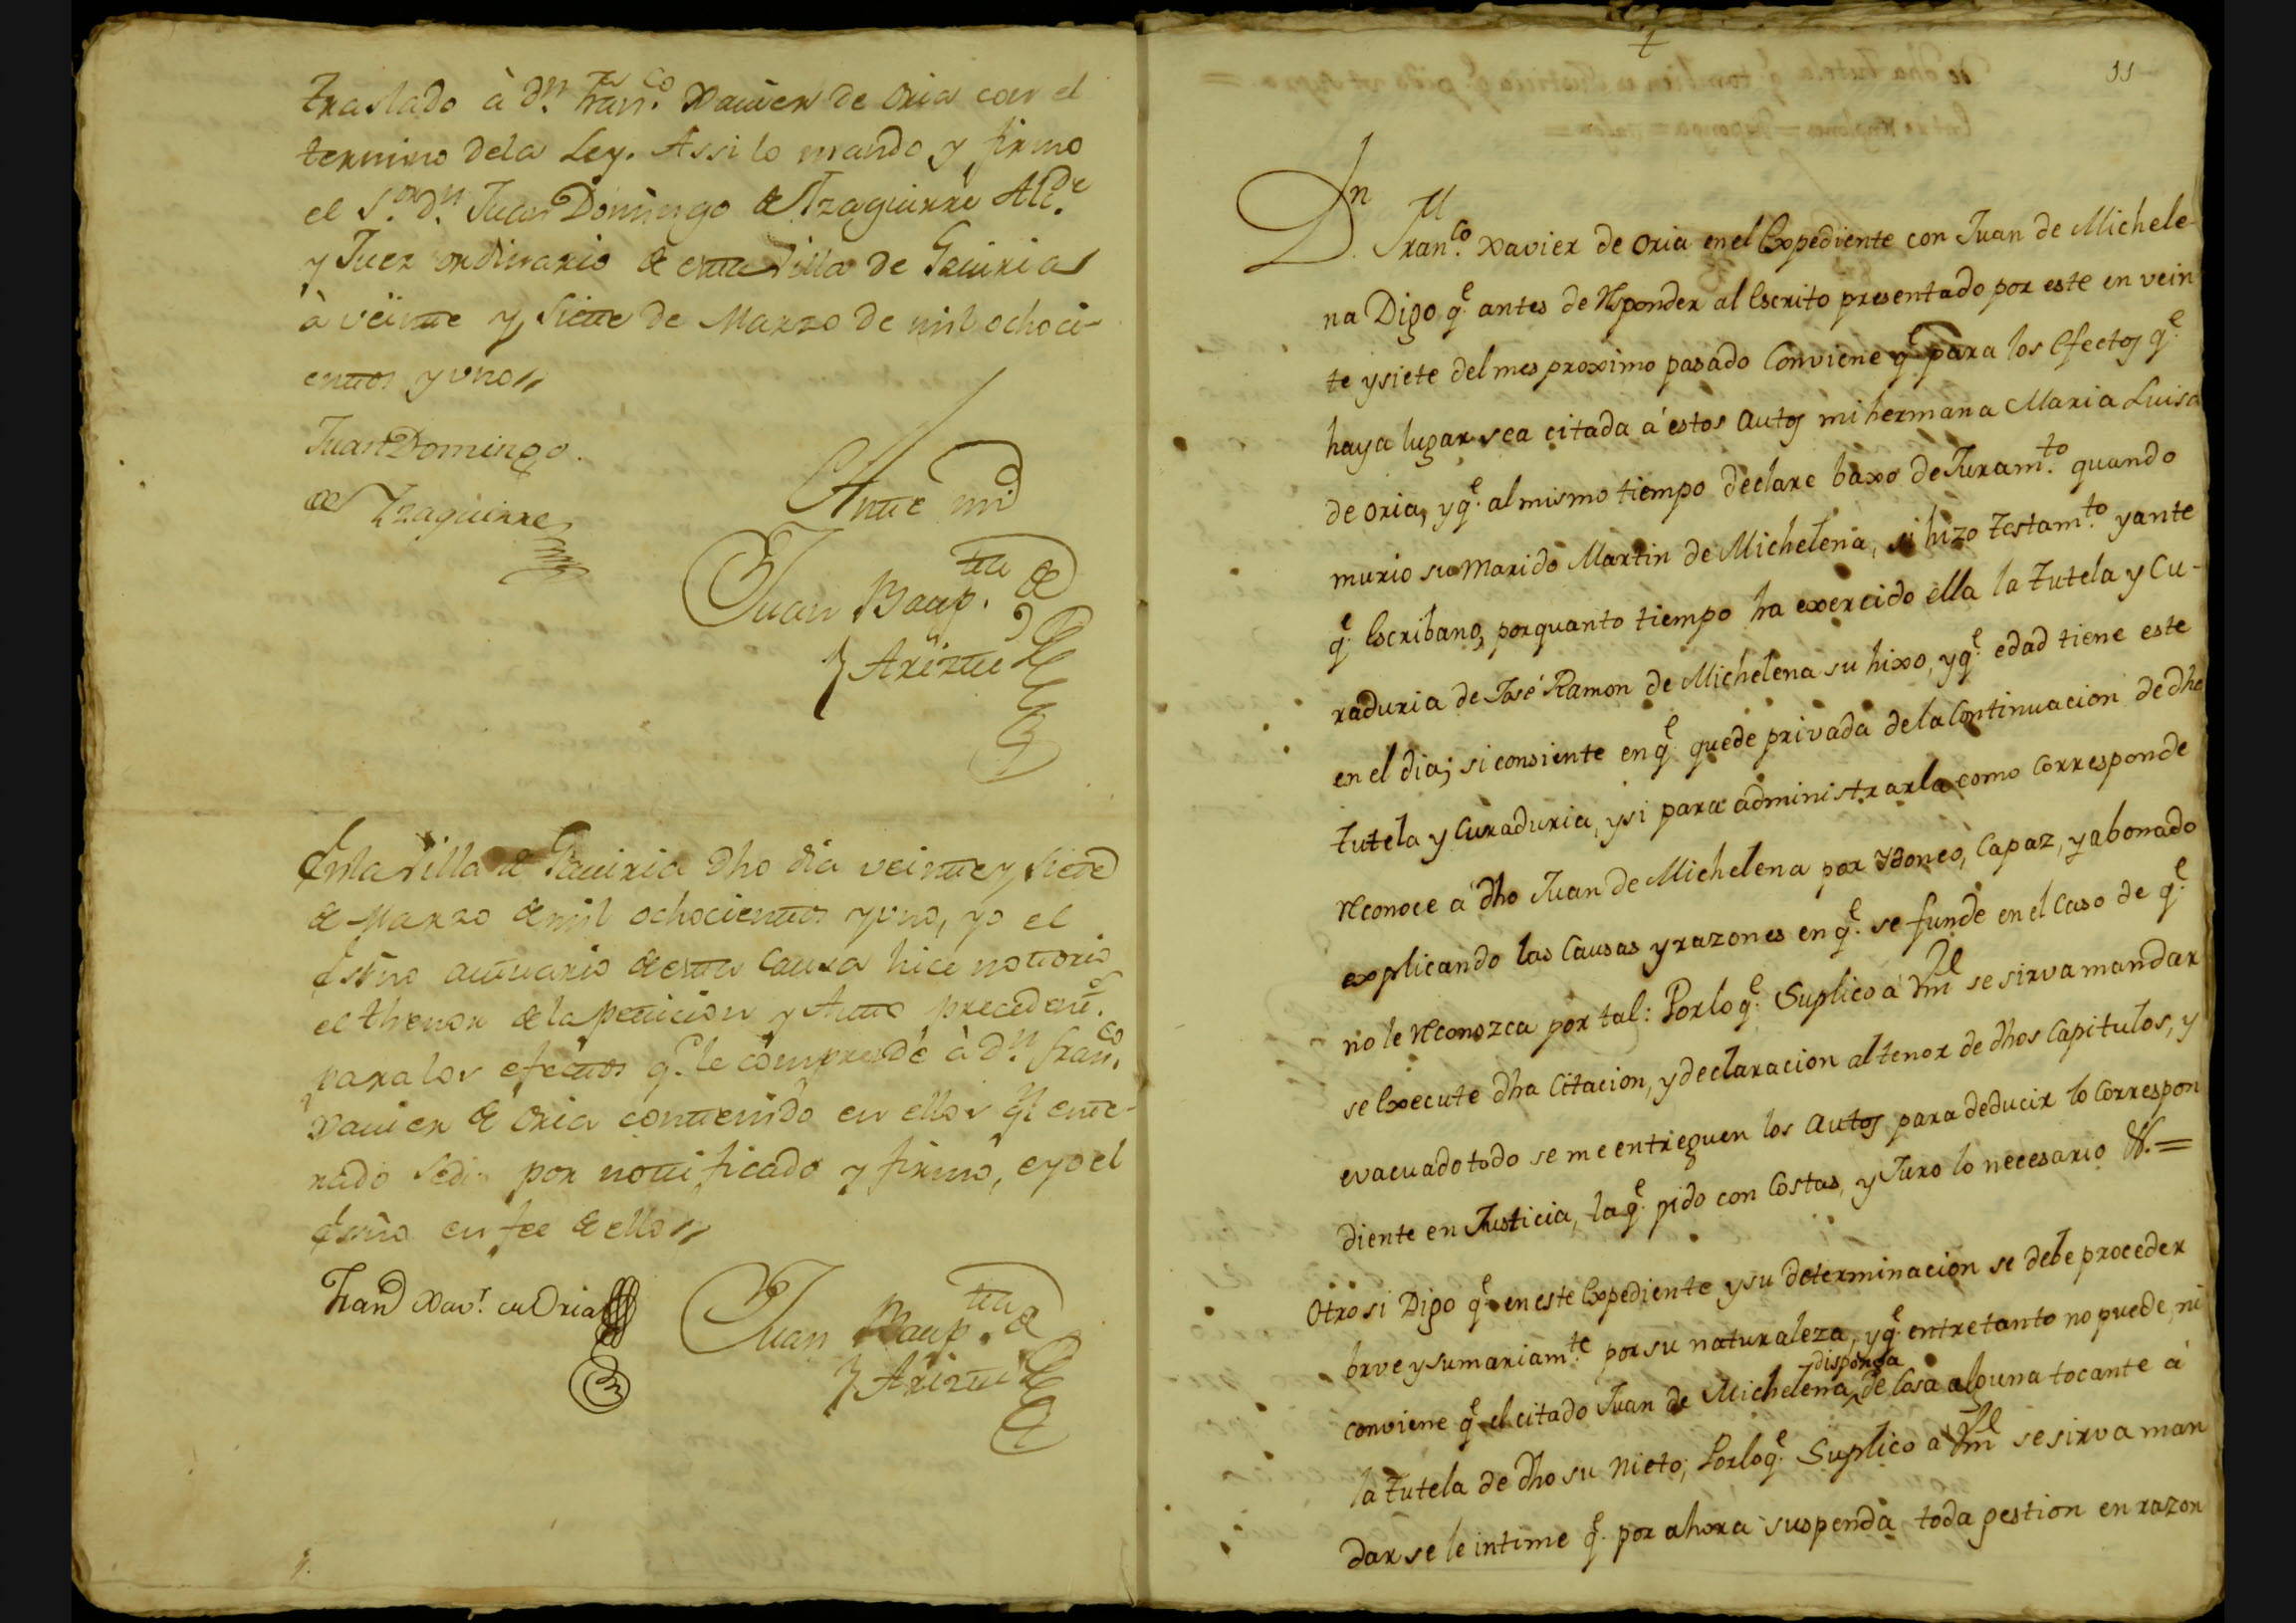 traslado à Dn. Franco. Xavier de Oria con el
termino dela Ley. Assi lo mando y firmo
el Sor. Dn. Juan Domingo de Yzaguirre Allde.
y Juez ordinario de esta Villa de Gaviria
à veinte y siete de Marzo de mil ochoci-
entos y uno
Juan Domingo
de Yzaguirre
Ante mi
Juan Bauptta. de
Arizti
En la Villa de Gaviria dho dia veinte y siete
de Marzo de mil ochocientos y uno, yo el
Essno actuario de esta Causa hice notorio
el thenor de la peticion y Auto precedentes
para los efectos qe. le comprende à Dn. Franco.
Xavier de Oria contenido en ellos qn. ente-
rado se dio por notificado y firmo, e yo el
Essno en fee de ello
Franco Xavr. de Oria
Juan Bauptta. de
Arizti
11
Dn. Franco. Xavier de Oria en el Expediente con Juan de Michele-
na Digo qe. antes de Responder al Escrito presentado por este en vein
te y siete del mes proximo pasado Conviene qe. para los Efectos qe.
haya lugar sea citada á estos Autos mi hermana Maria Luisa
de Oria, y qe. al mismo tiempo declare baxo de Juramto. quando
murio su Marido Martin de Michelena, si hizo Testamto. y ante
qe. Escribano, por quanto tiempo ha exercido ella la Tutela y Cu-
raduria de José Ramon de Michelena su hixo, y qe. edad tiene este
en el dia; si consiente en qe. quede privada de la Continuacion de dha
Tutela y Curaduria, y si para administrarla como Corresponde
Reconoce á dho Juan de Michelena por Ydoneo, Capaz, y abonado
explicando las Causas y razones en qe. se funde en el Caso de qe.
no le Reconozca por tal: Por lo qe. Suplico á Vm se sirva mandar
se Execute dha Citacion, y declaracion al tenor de dhos Capitulos, y
evacuado todo se me entreguen los Autos para deducir lo Correspon
diente en Justicia, la qe. pido con Costas, y Juro lo necesario &. =
Otrosi Digo qe. en este Expediente y su determinacion se debe proceder
brve y sumariamte. por su naturaleza, y qe. entre tanto no puede, ni
disponga
conviene qe. el citado Juan de Michelena de Cosa alguna tocante á
la Tutela de dho su Nieto; Por lo qe. Suplico a Vm se sirva man
dar se le intime qe. por ahora suspenda toda gestion en razon